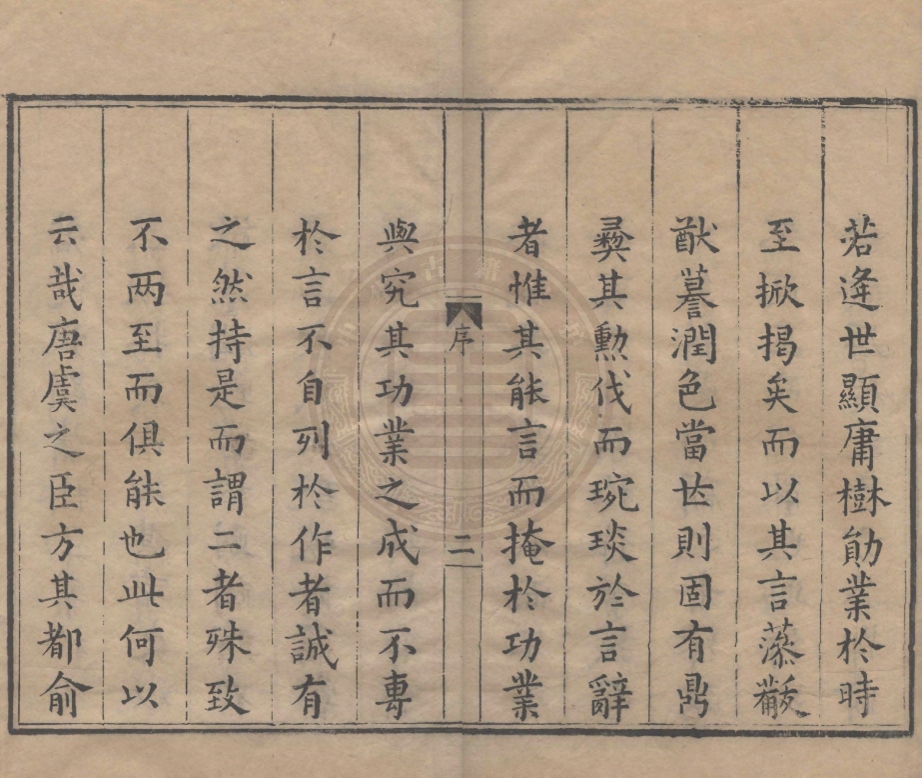 若逢世顯庸樹勛業於時
至掀揭矣而以其言藻黻
猷謩潤色當世則固有鼎
彝其勳伐而琬琰於言辭
者惟其能言而掩於功業
序
二
與究其功業之成而不專
於言不自列於作者誠有
之然持是而謂二者殊致
不两至而俱能也此何以
云哉唐虞之臣方其都俞